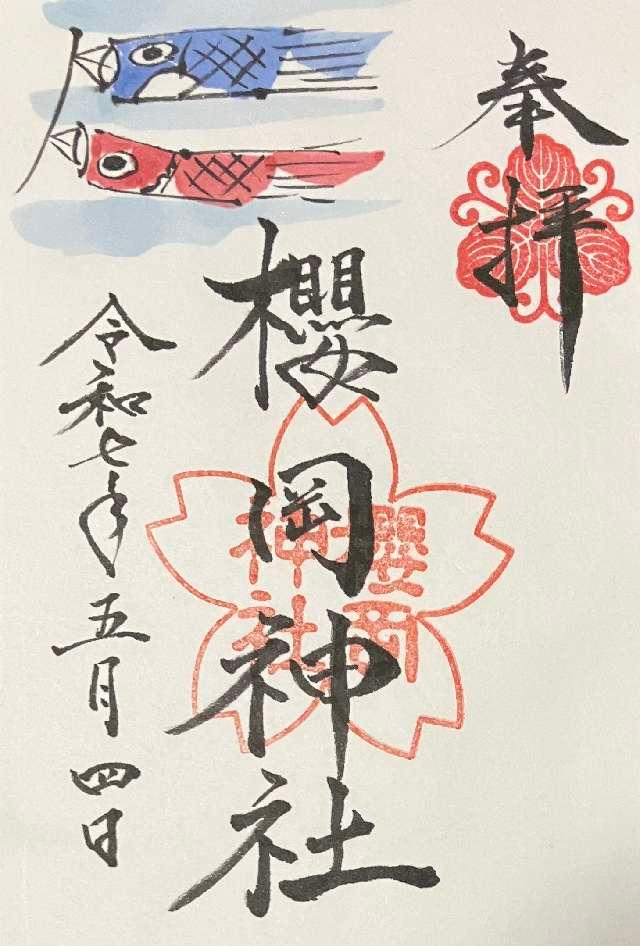 奉拝
櫻岡神社
櫻岡
神社
令和七年五月四日